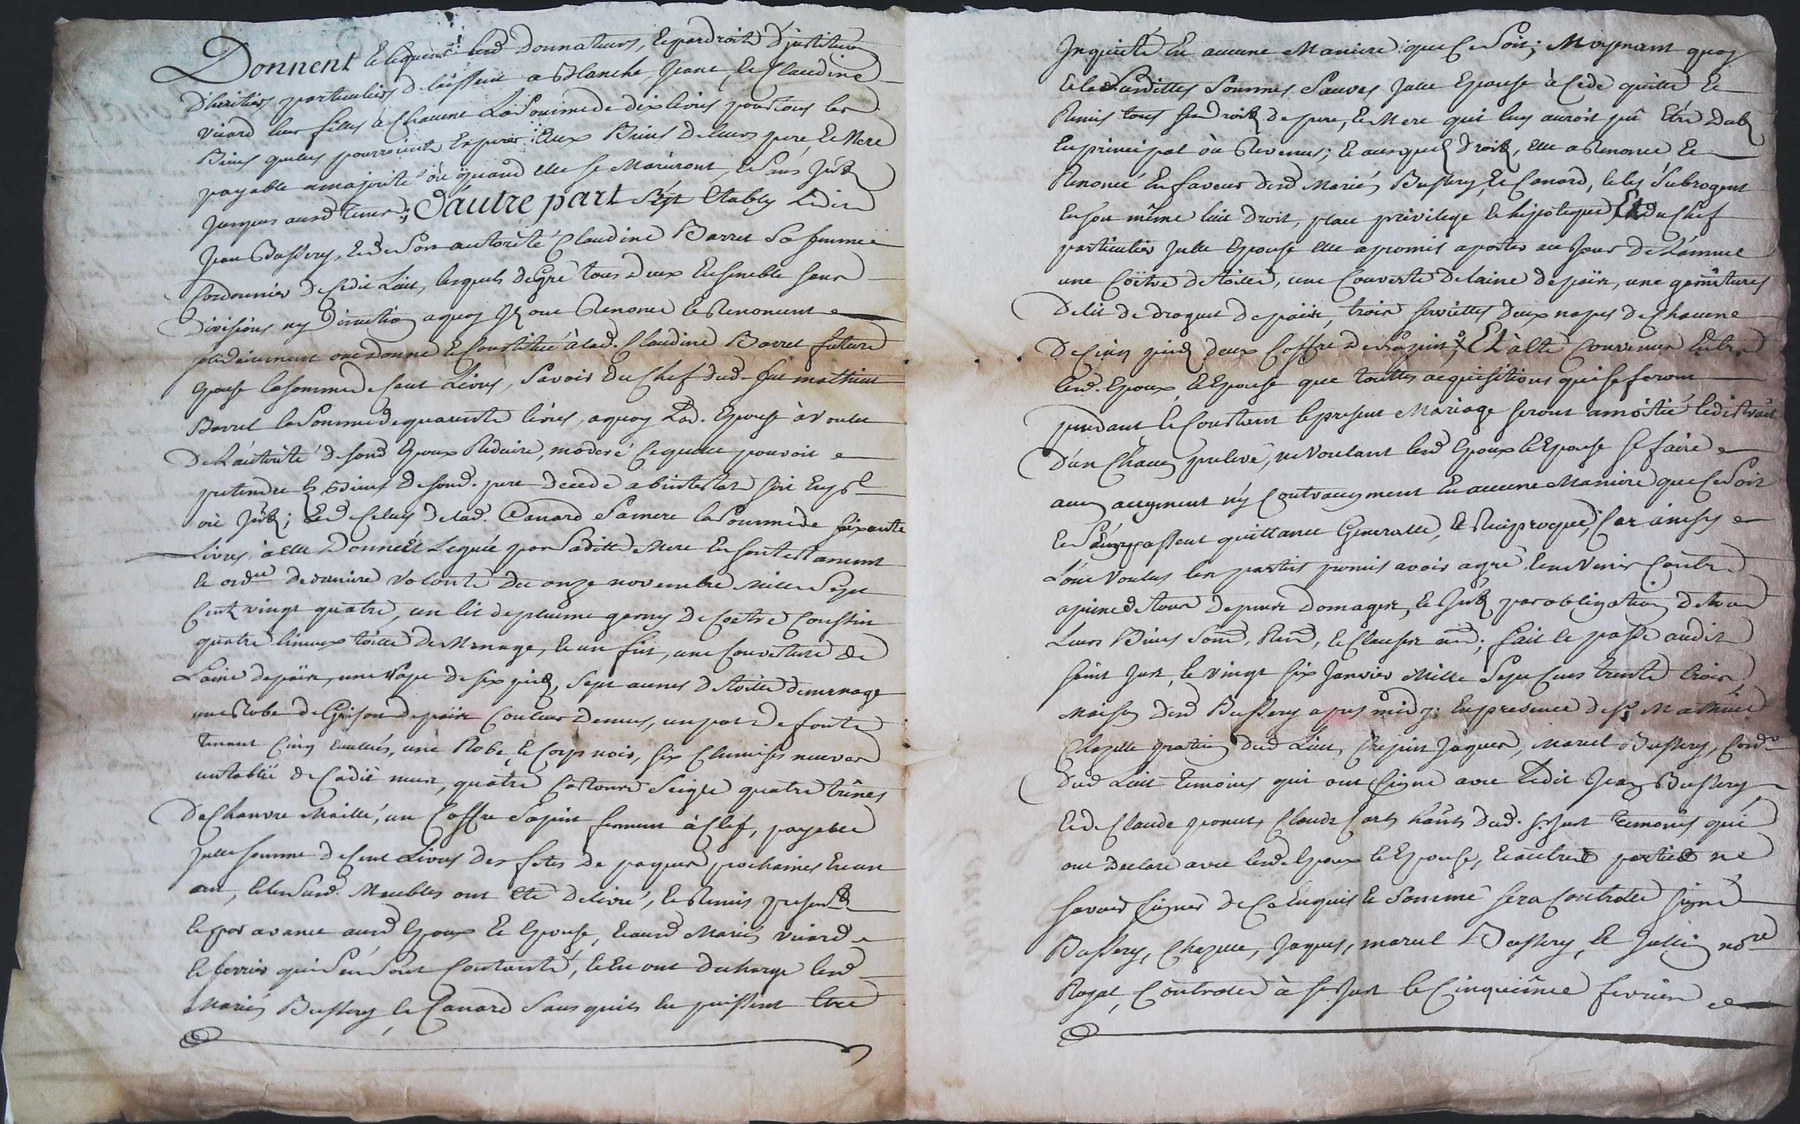 Donnent et leguent lesd donnateurs, et par droits d'institution
d'heritiers particuliers delaissent a Blanche, Jeane et Claudine
viard leur filles a Chacune La Somme de dix livres pour tous les
Biens quelles pourroient Esperer aux Biens de leurs pere et Mere
payable a majorité ou quand elle se Mariront, et sans
Jusques aud terme; D'autre part Etably Ledit
Jean Bussery, et de Son autorité Claudine Barret Sa femme
Cordonnier de cedit Lieu, lesquels de Gré tous deux Ensemble sans
Divisions ny discution a quoy Ils ont Renoncé et Renoncent
ont donné et Constitué à lad. Claudine Barret future
Epouse la somme de Cent Livres, Savoir du Chef dud. feu mathieu
Barret la Somme de quarante livres, a quoy Lad. Epouse à voulu
De L'autorité de sond Epoux Reduire, moderé Ce quelle pouvoit
pretendre es Biens de sond. pere decedé abintestat soit En
ou ; Et de Celuy de lad. Canard Sa mere la Somme de soixante
Livres à elle Donnée et Leguée par Saditte Mere En son testament
et derniere Volonté du onze novembre Mille Sept
Cent vingt quatre, un lit de plume garny de Coetre Coussin
quatre linceux toille de Menage, et un fin, une Couverture de
Laine de païs, une Nape de six pieds, Sept aunes de toille de menage
une Robe de Grison de païs Couleur de mus, un pot de fonte
tenant Cinq , une Robe, et Corps noir, six Chemises neuves
quatre Seigle quatre
De Chanvre Maillé, un Coffre Sapin fermant à Clef, payable
Jelle somme de Cent Livres des fetes de paques prochaines En un
an, et les Susd. Meubles ont eté delivré, et Remis presentement
et par avance aud Epoux et Epouse, aud Mariés viard
le fevrier qui S'en Sont Contanté, et En ont decharge lesd
Mariés Bussery et Canard Sans quils En puissent être
Inquieté En aucune Maniere que Ce Soit; Moyenant quoy
et les Susdittes Sommes Sauves Jelle Epouse à Cedé quitté et
Remis tous ses droits de pere, et Mere qui luy auroit pû Etre
En principal ou Revenus; et auxquels droits, elle a Renoncé et
Renonce En faveur desd Mariés Bussery, et Canard, et les Subrogent
En son même lieu droit, place privilege et hipoteque; Et du Chef
particulier Jelle Epouse elle a promis aporter au Jour de
une Coëtre de toille, une Couverte de Laine de païs, une garniture
De lit de droguet de païs, trois serviettes deux napes de Chacune
De Cinq pieds deux Coffres de sapin; Et à eté Convenu Entre
lesd. Epoux, et Epouse que touttes acquisitions qui se feront
pendant et Constant le present Mariage seront
D'un Chacun prelevé, ne Voulant lesd Epoux et Epouse se faire
aucun augment n'y Contraugment En aucune Maniere que Ce Soit
et passent quittance Generalle, et Reciproque; Car ainsy
L'ont Voulu les parties promis avoir agré et ne Venir Contre
a peine de tous depens Domages, et par obligation de tous
Leurs Biens Soum, Ren, et Clauses &c; fait et passé audit
saint Just, le vingt six Janvier Mille Sept Cens trente trois
Maison dud Bussery apres midy; En presence de Mathieu
Chapelle praticien dud Lieu, Crepin Jaques, Marcel Bussery, Cord
Dud Lieu temoins qui ont Signé avec Ledit Jean Bussery
et de Claude Claude hauts dud. St Just temoins qui
ont declaré avec lesd. Epoux et Epouse, et autres parties ne
Savoir Signer de Ce Enquis et Sommé Sera Controlé Signé
Bussery, Chapelle, Jaques, marcel Bussery, et Jullien nore
Royal, Controlé à St Just le Cinquième fevrier